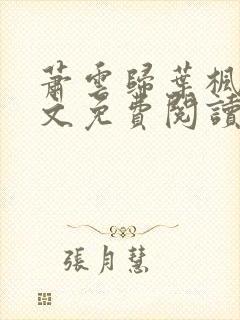 蕭雲歸葉楓
文免費閱讀
張月慧